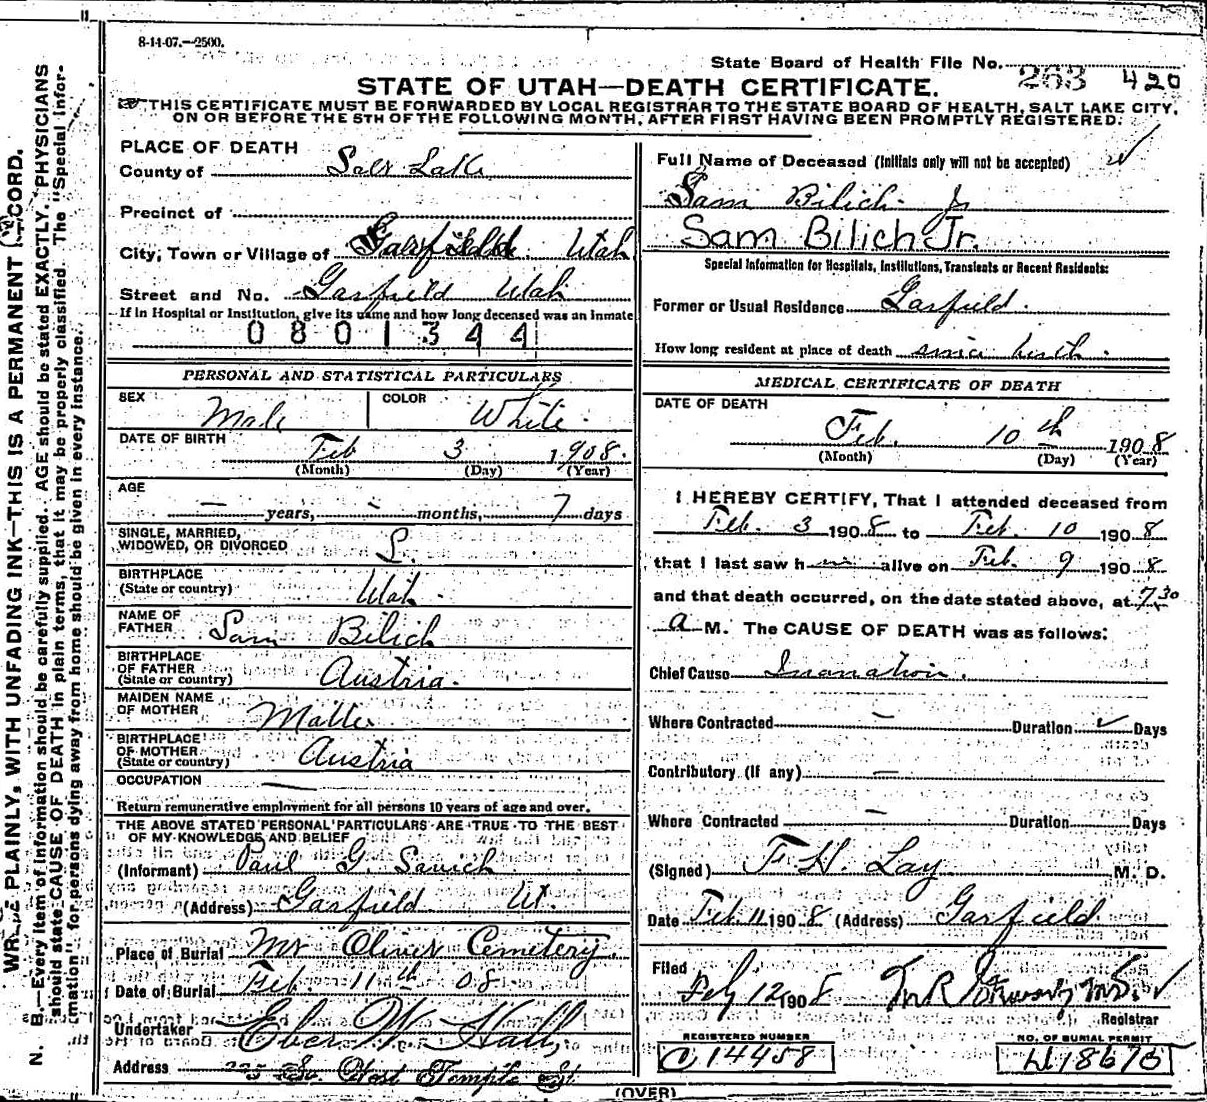 8-14-07.—2500.
State Board of Health File No. 263 420
STATE OF UTAH—DEATH CERTIFICATE.
THIS CERTIFICATE MUST BE FORWARDED BY LOCAL REGISTRAR TO THE STATE BOARD OF HEALTH, SALT LAKE CITY,
ON OR BEFORE THE 5TH OF THE FOLLOWING MONTH, AFTER FIRST HAVING BEEN PROMPTLY REGISTERED.
PLACE OF DEATH
County of Salt Lake
Precinct of
City, Town or Village of Garfield Utah
Street and No. Garfield Utah
If in Hospital or Institution, give its name and how long deceased was an inmate
0801344
PERSONAL AND STATISTICAL PARTICULARS
SEX Male COLOR White
DATE OF BIRTH Feb 3 1908.
(Month) (Day) (Year)
AGE — years, - months, 7 days
SINGLE, MARRIED,
WIDOWED, OR DIVORCED S.
BIRTHPLACE
(State or country) Utah.
NAME OF
FATHER Sam Bilich
BIRTHPLACE
OF FATHER
(State or country) Austria.
MAIDEN NAME
OF MOTHER
BIRTHPLACE
OF MOTHER
(State or country) Austria
OCCUPATION —
Return remunerative employment for all persons 10 years of age and over.
THE ABOVE STATED PERSONAL PARTICULARS ARE TRUE TO THE BEST
OF MY KNOWLEDGE AND BELIEF
(Informant) Paul G. Savich
(Address) Garfield Ut.
Place of Burial Mt Olivet Cemetery.
Date of Burial Feb. 11th 08
Undertaker Eber W. Hall,
Address So. West Temple St.
Full Name of Deceased (Initials only will not be accepted)
Sam Bilich Jr
Sam Bilich Jr.
Special Information for Hospitals, Institutions, Transients or Recent Residents:
Former or Usual Residence Garfield.
How long resident at place of death since birth.
MEDICAL CERTIFICATE OF DEATH
DATE OF DEATH
Feb. 10th 1908
(Month) (Day) (Year)
I HEREBY CERTIFY, That I attended deceased from
Feb. 3 1908 to Feb. 10 1908
that I last saw him alive on Feb. 9 1908
and that death occurred, on the date stated above, at 7.30
a M. The CAUSE OF DEATH was as follows:
Chief Cause Inanation.
Where Contracted — Duration Days
Contributory (If any) —
Where Contracted — Duration Days
(Signed) F. H. Lay M. D.
Date Feb 11 1908 (Address) Garfield
Filed
Feby 12, 1908
Registrar
REGISTERED NUMBER
C 14458
NO. OF BURIAL PERMIT
(OVER)
WRITE PLAINLY, WITH UNFADING INK—THIS IS A PERMANENT RECORD.
N. B.—Every item of information should be carefully supplied. AGE should be stated EXACTLY. PHYSICIANS
should state CAUSE OF DEATH in plain terms, that it may be properly classified. The "Special Infor-
mation" for persons dying away from home should be given in every instance.